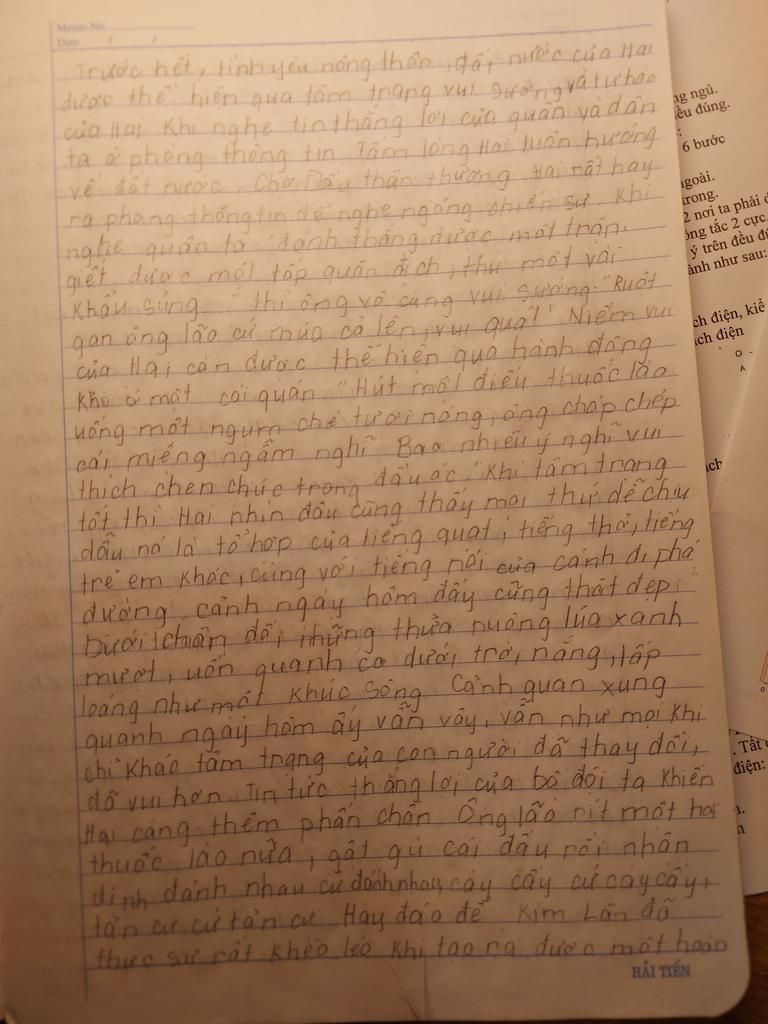 Memo No.
Date / /
Trước hết, tình yêu nông thôn, đất nước của Hai
được thể hiện qua tâm trạng vui sướng và tự hào
của Hai khi nghe tin thắng lợi của quân và dân
ta ở phòng thông tin Tấm lòng Hai luôn hướng
về đất nước, Chợ Dầu thân thương Hai rất hay
ra phòng thông tin để nghe ngóng chiến sự. Khi
nghe quân ta "đánh thắng được một trận,
giết được một tốp quân địch, thu một vài
khẩu súng..." thì ông vô cùng vui sướng "Ruột
gan ông lão cứ múa cả lên, vui quá!" Niềm vui
của Hai còn được thể hiện qua hành động
khi ở một cái quán "Hút một điếu thuốc lào
uống một ngụm chè tươi nóng, ông chóp chép
cái miệng ngẫm nghĩ Bao nhiêu ý nghĩ vui
thích chen chúc trong đầu óc." Khi tâm trạng
tốt thì Hai nhìn đâu cũng thấy mọi thứ dễ chịu
dẫu nó là tổ hợp của tiếng quạt, tiếng thở, tiếng
trẻ em khóc, cùng với tiếng nói của cánh đi phá
đường, cảnh ngày hôm đấy cũng thật đẹp "
Dưới chân đồi, những thửa ruộng lúa xanh
mượt, uốn quanh co dưới trời nắng, lấp
loáng như một khúc sông Cảnh quan xung
quanh ngày hôm ấy vẫn vậy, vẫn như mọi khi
chỉ khác tâm trạng của con người đã thay đổi,
đã vui hơn. Tin tức thắng lợi của bộ đội ta khiến
Hai càng thêm phấn chấn Ông lão rít một hơi
thuốc lào nữa, gật gù cái đầu rồi nhận
định đánh nhau cứ đánh nhau, cày cấy cứ cày cấy,
tản cư cứ tản cư Hay đáo để Kim Lân đã
thực sự rất khéo léo khi tạo ra được một hoàn
HẢI TIẾN
ng ngủ.
ều đúng.
:
6 bước
goài.
trong.
2 nơi ta phải
ông tắc 2 cực.
ý trên đều đ
ành như sau:
ch điện, kiể
ch điện
O
A
ch
. Tất
điện: